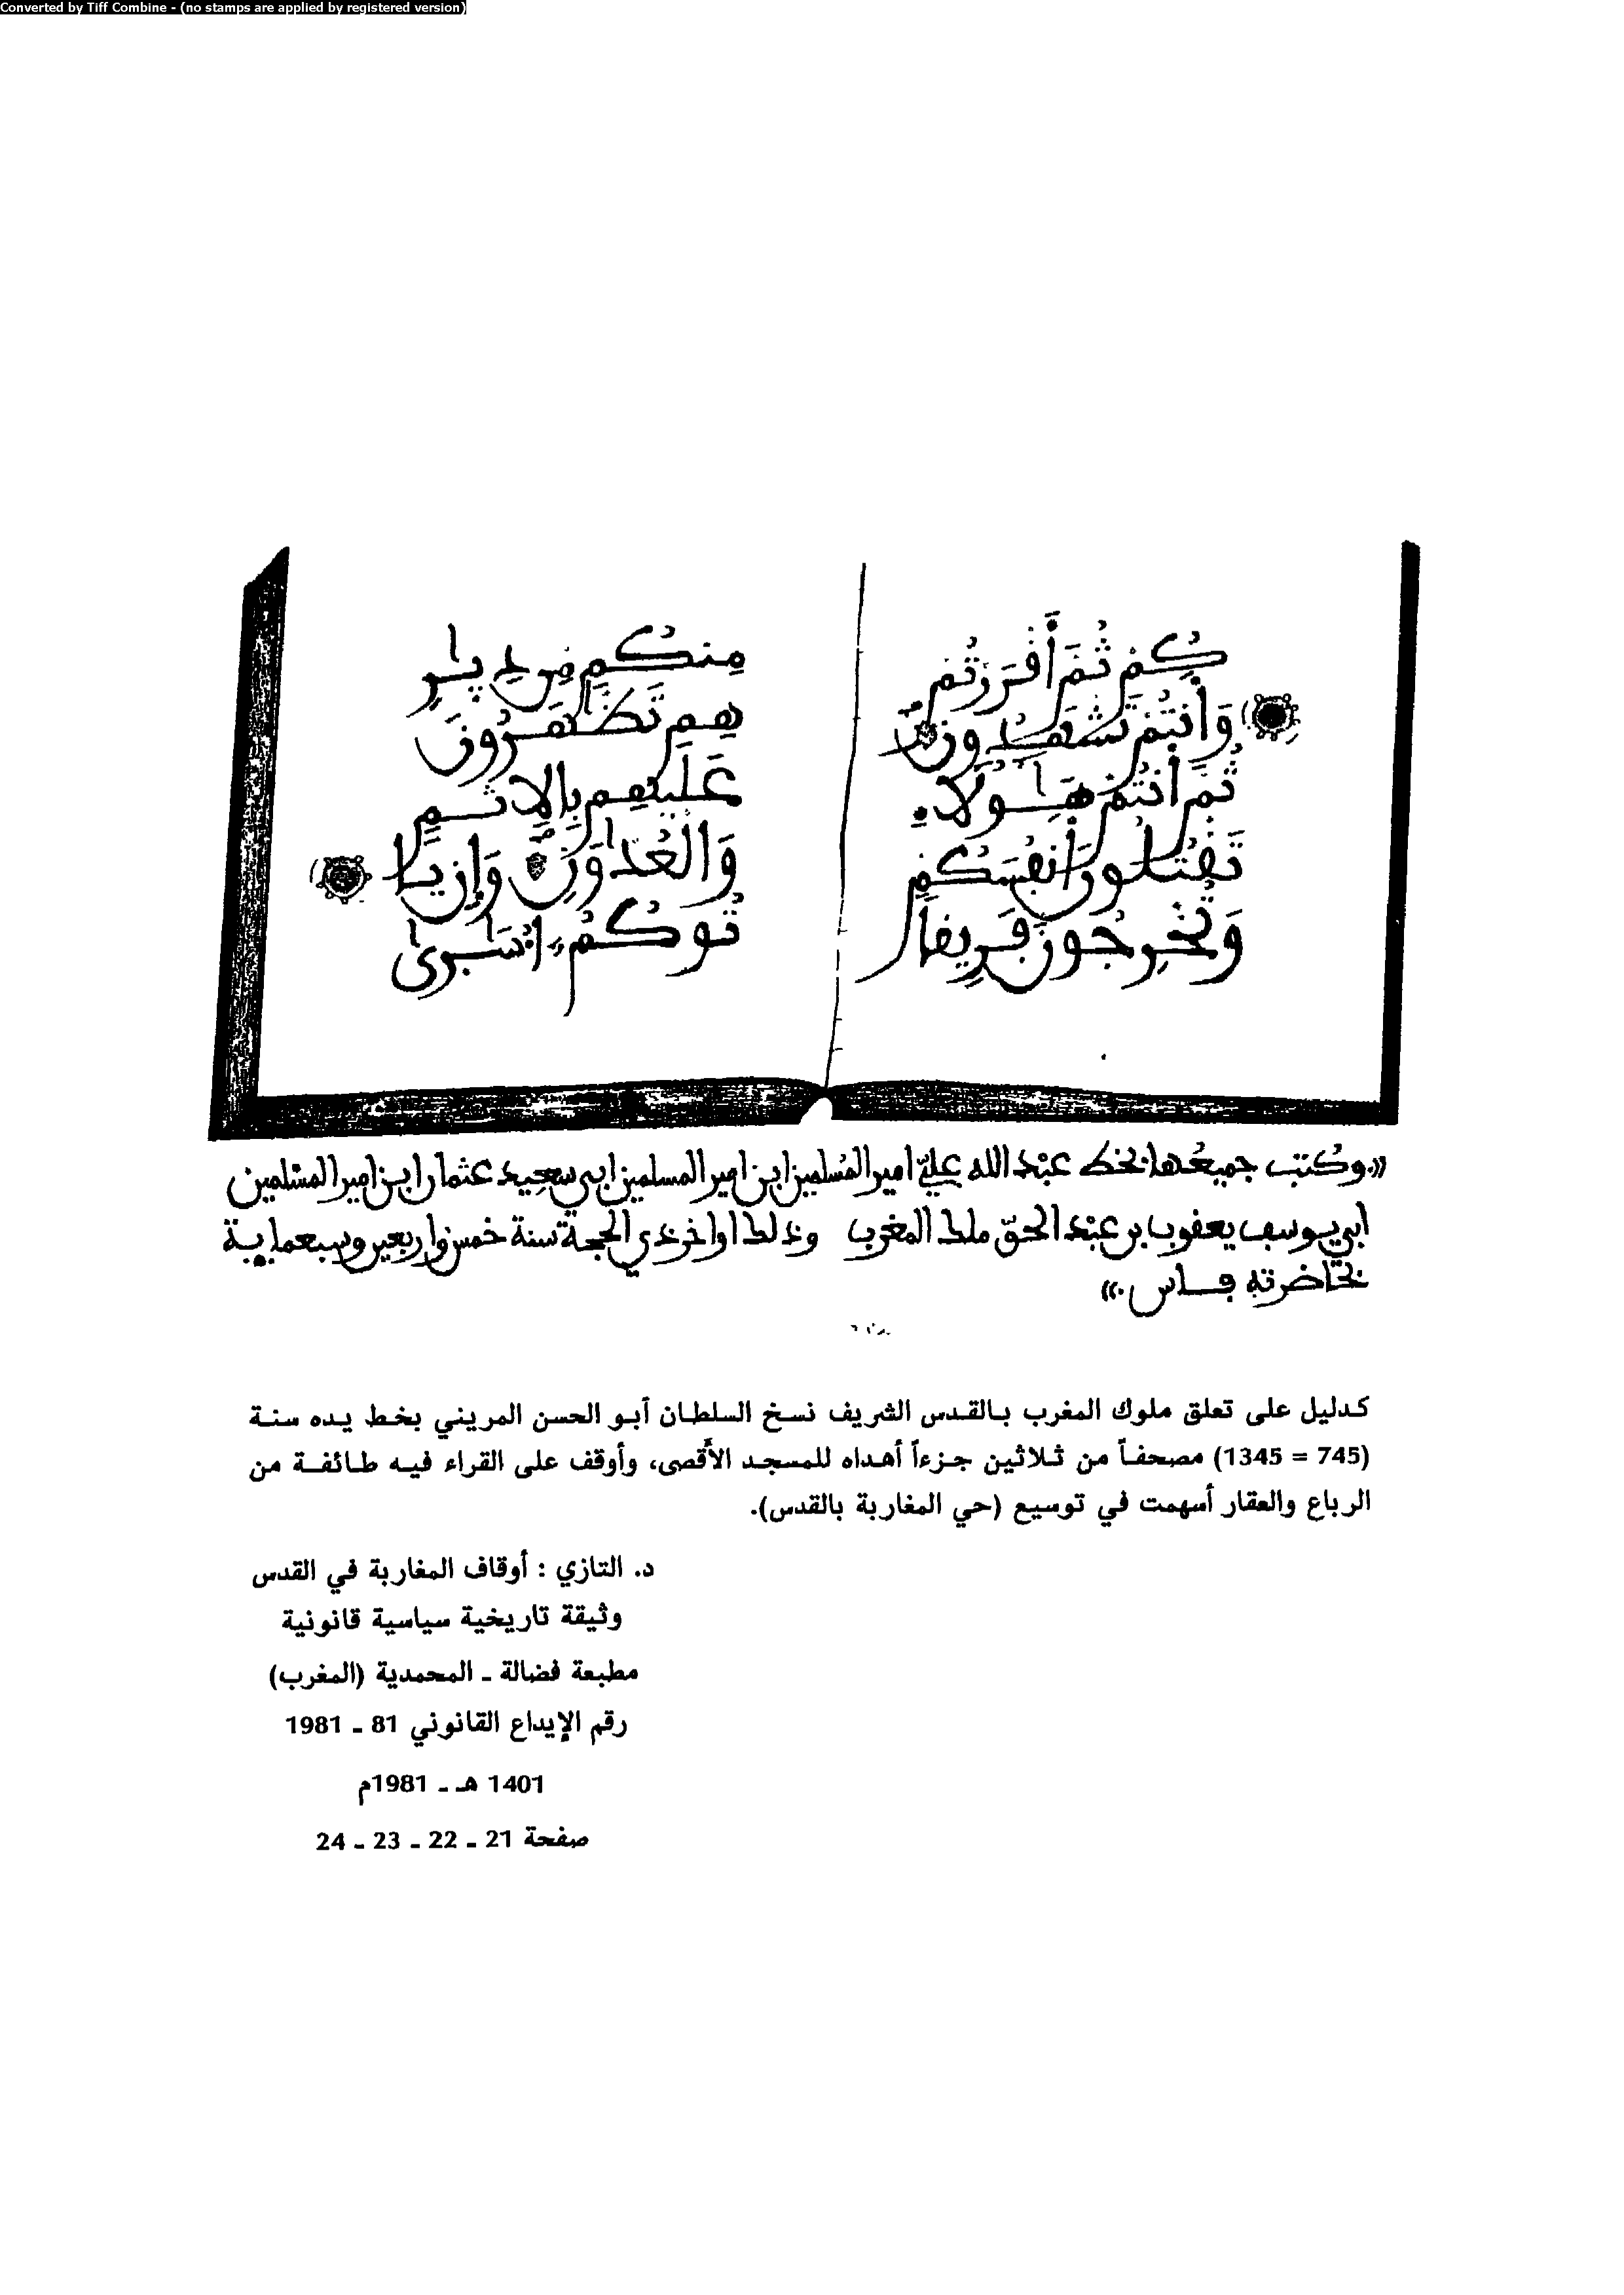 Converted by Tiff Combine - (no stamps are applied by registered version)
كُمْ ثُمَّ أَقْرَرْتُمْ
وَأَنتُمْ تَشْهَدُونَ
ثُمَّ أَنتُمْ هَٰؤُلَاءِ
تَقْتُلُونَ أَنفُسَكُمْ
وَتُخْرِجُونَ فَرِيقاً
مِنكُم مِّن دِيَٰرِ
هِمْ تَظَّٰهَرُونَ
عَلَيْهِم بِالِاثْمِ
وَالْعُدْوَٰنِ وَإِن يَا
تُوكُمُ أُسَٰرَىٰ
«.وكُتب جميعُها بخط عبْد الله عليّ امير المُسلمين ابن امير المسلمين ابي سعيد عثمان ابن امير المسْلمين
ابي يوسف يعقوب بن عبْد الحقّ ملك المغرب وذلك اواخر ذي الحجة سنة خمس واربعين وسبعماية
بحَاضرته فاس.»
كدليل على تعلق ملوك المغرب بالقدس الشريف نسخ السلطان أبو الحسن المريني بخط يده سنة
(745 = 1345) مصحفاً من ثلاثين جزءاً أهداه للمسجد الأقصى، وأوقف على القراء فيه طائفة من
الرباع والعقار أسهمت في توسيع (حي المغاربة بالقدس).
د. التازي : أوقاف المغاربة في القدس
وثيقة تاريخية سياسية قانونية
مطبعة فضالة - المحمدية (المغرب)
رقم الإيداع القانوني 81 - 1981
1401 هـ - 1981م
صفحة 21 - 22 - 23 - 24